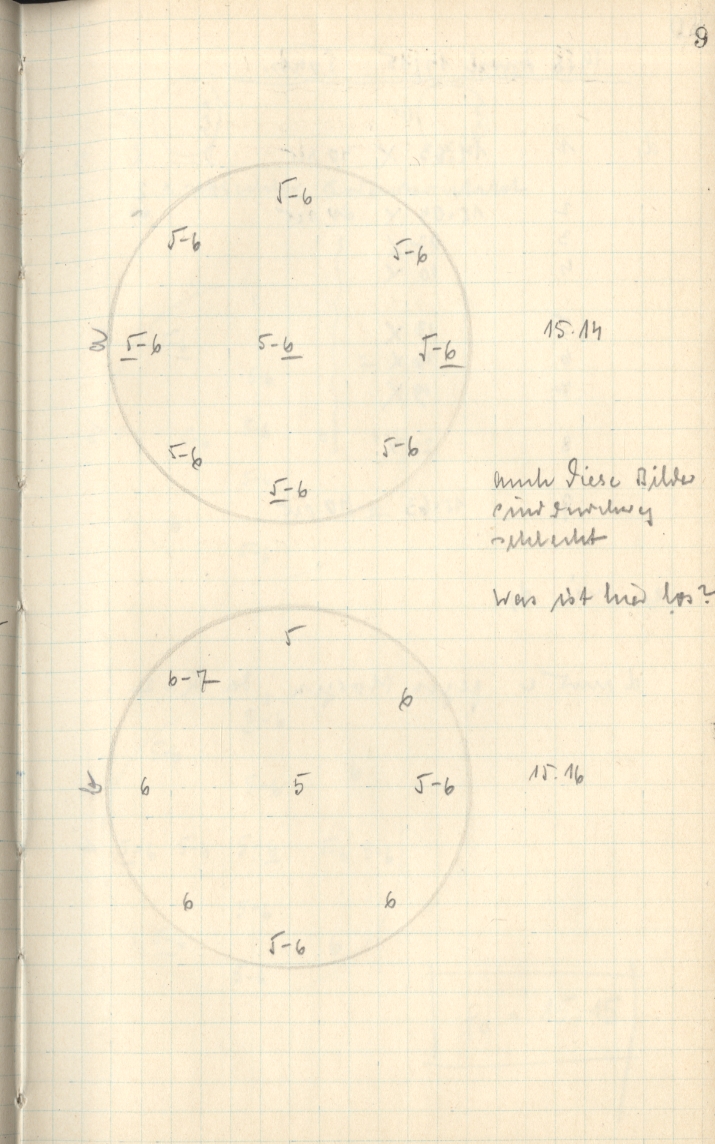 9
5-6
5-6
5-6
a 5-6 5-6 5-6 15.14
5-6 5-6
5-6
auch diese Bilder
sind durchweg
schlecht
Was ist hier los?
5
6-7
6
b 6 5 5-6 15.16
6 6
5-6